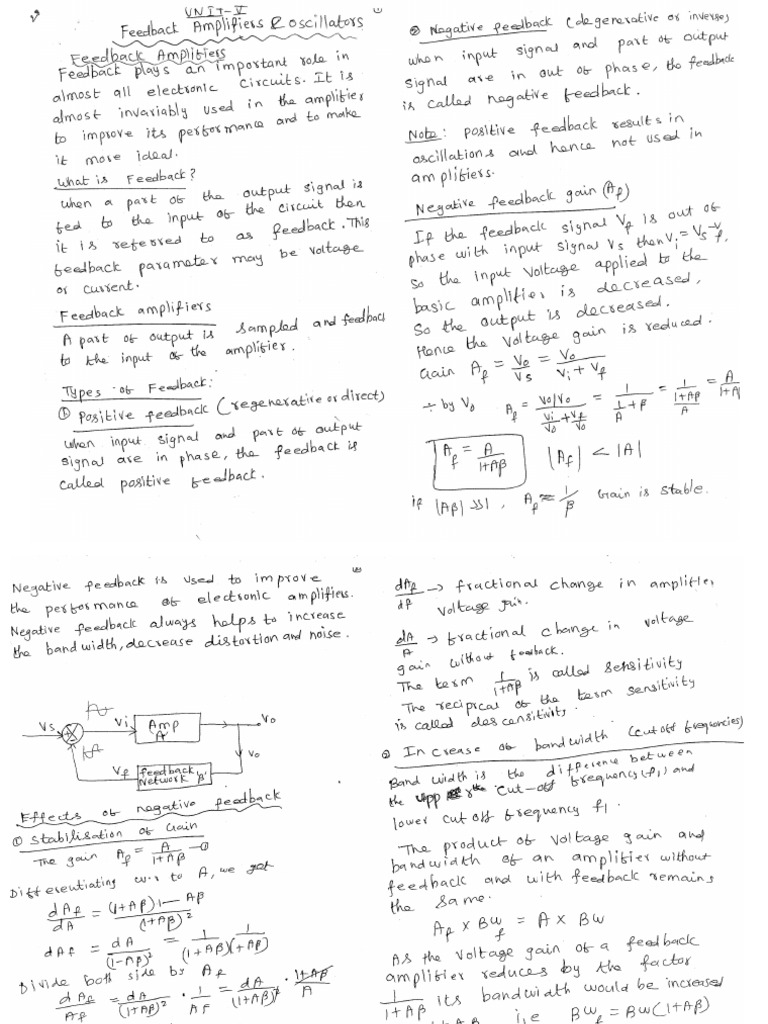 UNIT-V
Feedback Amplifiers & oscillators
Feedback Amplifiers
Feedback plays an important role in
almost all electronic circuits. It is
almost invariably used in the amplifier
to improve its performance and to make
it more ideal.
What is Feedback?
when a part of the output signal is
fed to the input of the circuit then
it is referred to as feedback. This
feedback parameter may be voltage
or current.
Feedback amplifiers
A part of output is sampled and feedback
to the input of the amplifier.
Types of Feedback:
① Positive feedback (regenerative or direct)
when input signal and part of output
signal are in phase, the feedback is
called positive feedback.
② Negative feedback (degenerative or inverse)
when input signal and part of output
signal are in out of phase, the feedback
is called negative feedback.
Note: positive feedback results in
oscillations and hence not used in
amplifiers.
Negative feedback gain (Af)
If the feedback signal Vf is out of
phase with input signal Vs then Vi = Vs-Vf.
So the input voltage applied to the
basic amplifier is decreased,
So the output is decreased.
Hence the voltage gain is reduced.
Gain Af = Vo/Vs = Vo/(Vi + Vf)
÷ by Vo Af = (Vo/Vo)/(Vi/Vo + Vf/Vo) = 1/(1/A + β) = 1/((1+Aβ)/A) = A/(1+A
Af = A/(1+Aβ) |Af| < |A|
if |Aβ| >>1, Af ≈ 1/β Gain is stable.
Negative feedback is used to improve
the performance of electronic amplifiers.
Negative feedback always helps to increase
the bandwidth, decrease distortion and noise.
Vs Vi Amp 'A' Vo
Vf feedback Network 'β' Vo
Effects of negative feedback
① Stabilisation of Gain
The gain Af = A/(1+Aβ) -①
Differentiating w.r to A, we get
dAf/dA = ((1+Aβ)1 - Aβ)/(1+Aβ)²
dAf = dA/(1-Aβ)² = 1/((1+Aβ)(1+Aβ))
Divide both side by Af
dAf/Af = dA/(1+Aβ)² . 1/AF = dA/(1+Aβ)² . (1+Aβ)/A
dAf/df → fractional change in amplifier
voltage gain.
dA/A → fractional change in voltage
gain without feedback.
The term 1/(1+Aβ) is called sensitivity
The reciprcal of the term sensitivity
is called desensitivity.
② Increase of bandwidth (cutoff frequencies)
Band width is the difference between
the upper cut-off frequency (f1) and
lower cut off frequency f1.
The product of voltage gain and
bandwidth of an amplifier without
feedback and with feedback remains
the same.
Af x BWf = A x BW
As the voltage gain of a feedback
amplifier reduces by the factor
1/(1+Aβ) its bandwidth would be increased
i.e BWf = BW(1+Aβ)